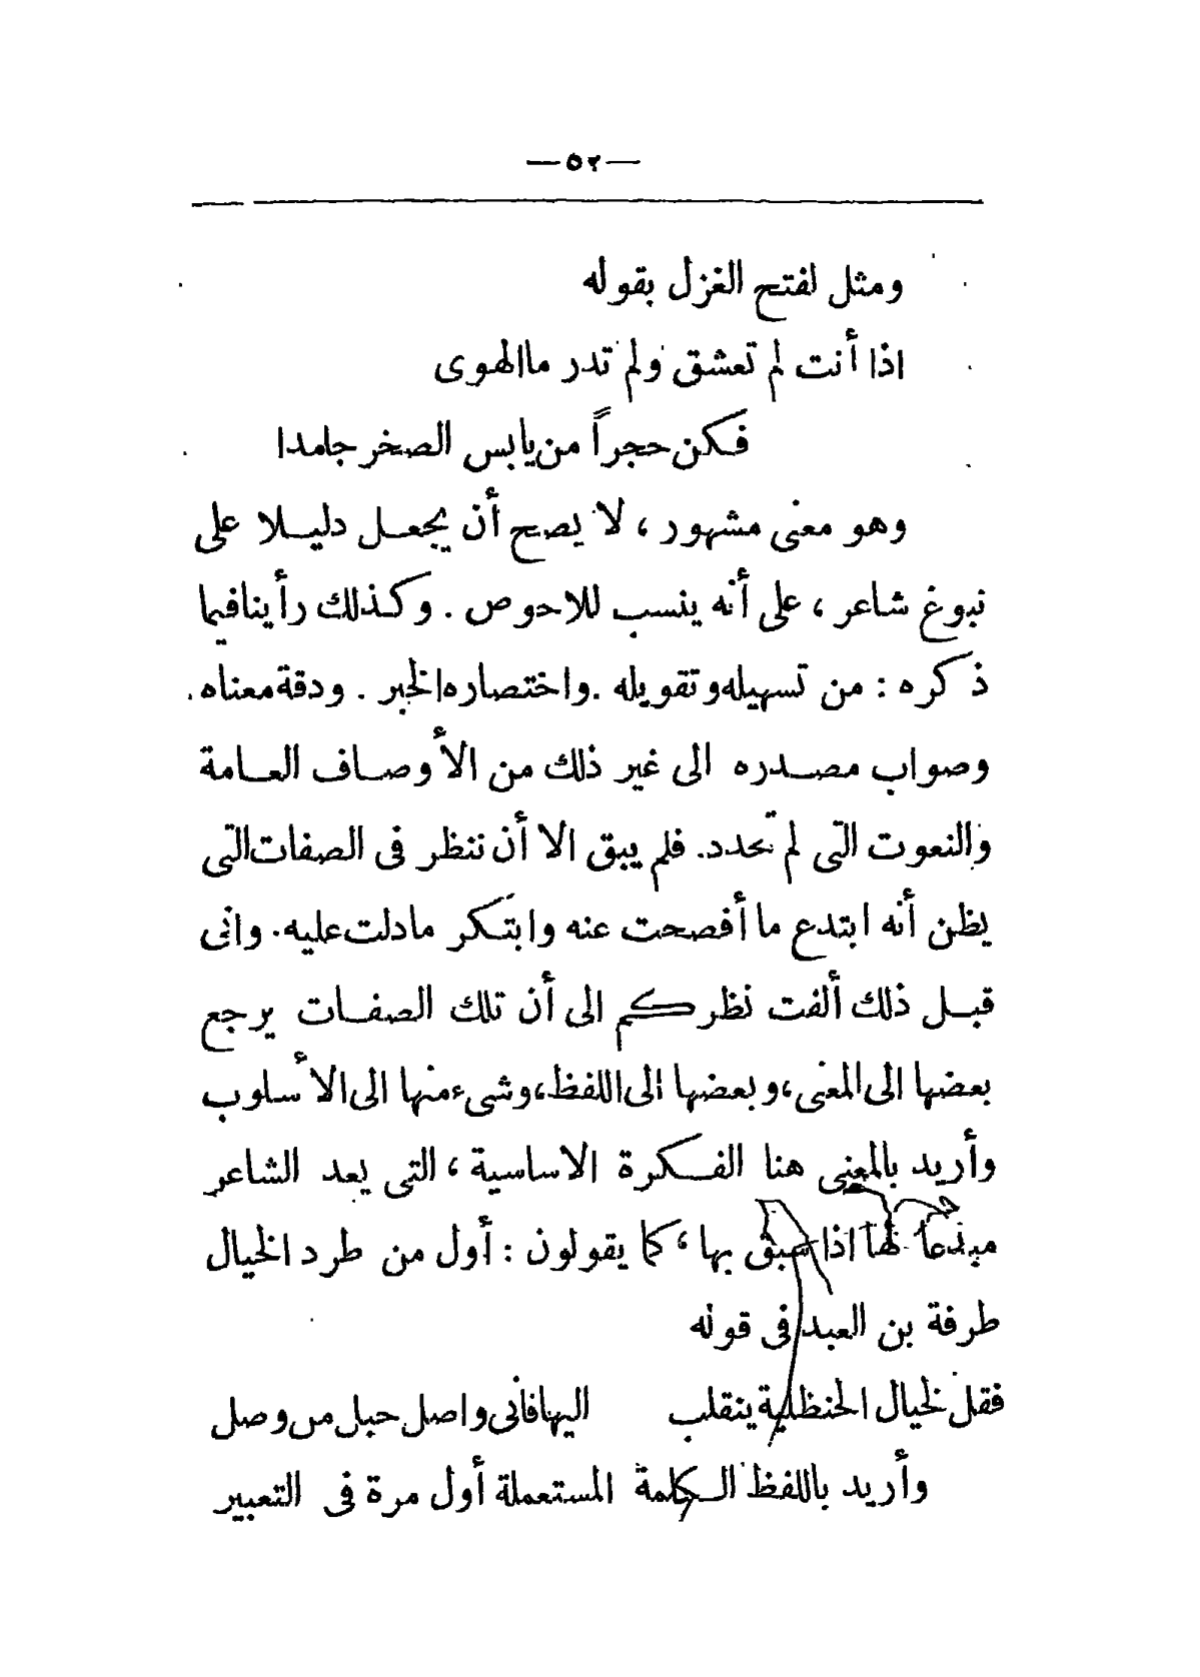 —٥٢—
ومثل لفتح الغزل بقوله
اذا أنت لم تعشق ولم تدر ما الهوى
فكن حجراً من يابس الصخر جامدا
وهو معنى مشهور ، لا يصح أن يجعل دليلا على
نبوغ شاعر ، على أنه ينسب للاحوص . وكذلك رأينا فيما
ذكره : من تسهيله وتقويله . واختصاره الخبر . ودقة معناه .
وصواب مصدره الى غير ذلك من الأوصاف العامة
والنعوت التى لم تحدد. فلم يبق الا أن ننظر فى الصفات التى
يظن أنه ابتدع ما أفصحت عنه وابتكر ما دلت عليه. وانى
قبل ذلك ألفت نظركم الى أن تلك الصفات يرجع
بعضها الى المعنى ، وبعضها الى اللفظ ، وشىء منها الى الأسلوب
وأريد بالمعنى هنا الفكرة الاساسية ، التى يعد الشاعر
مبتدعا لها اذا سبق بها ، كما يقولون : أول من طرد الخيال
طرفة بن العبد فى قوله
فقل لخيال الحنظلية ينقلب اليها فانى واصل حبل من وصل
وأريد باللفظ الكلمة المستعملة أول مرة فى التعبير